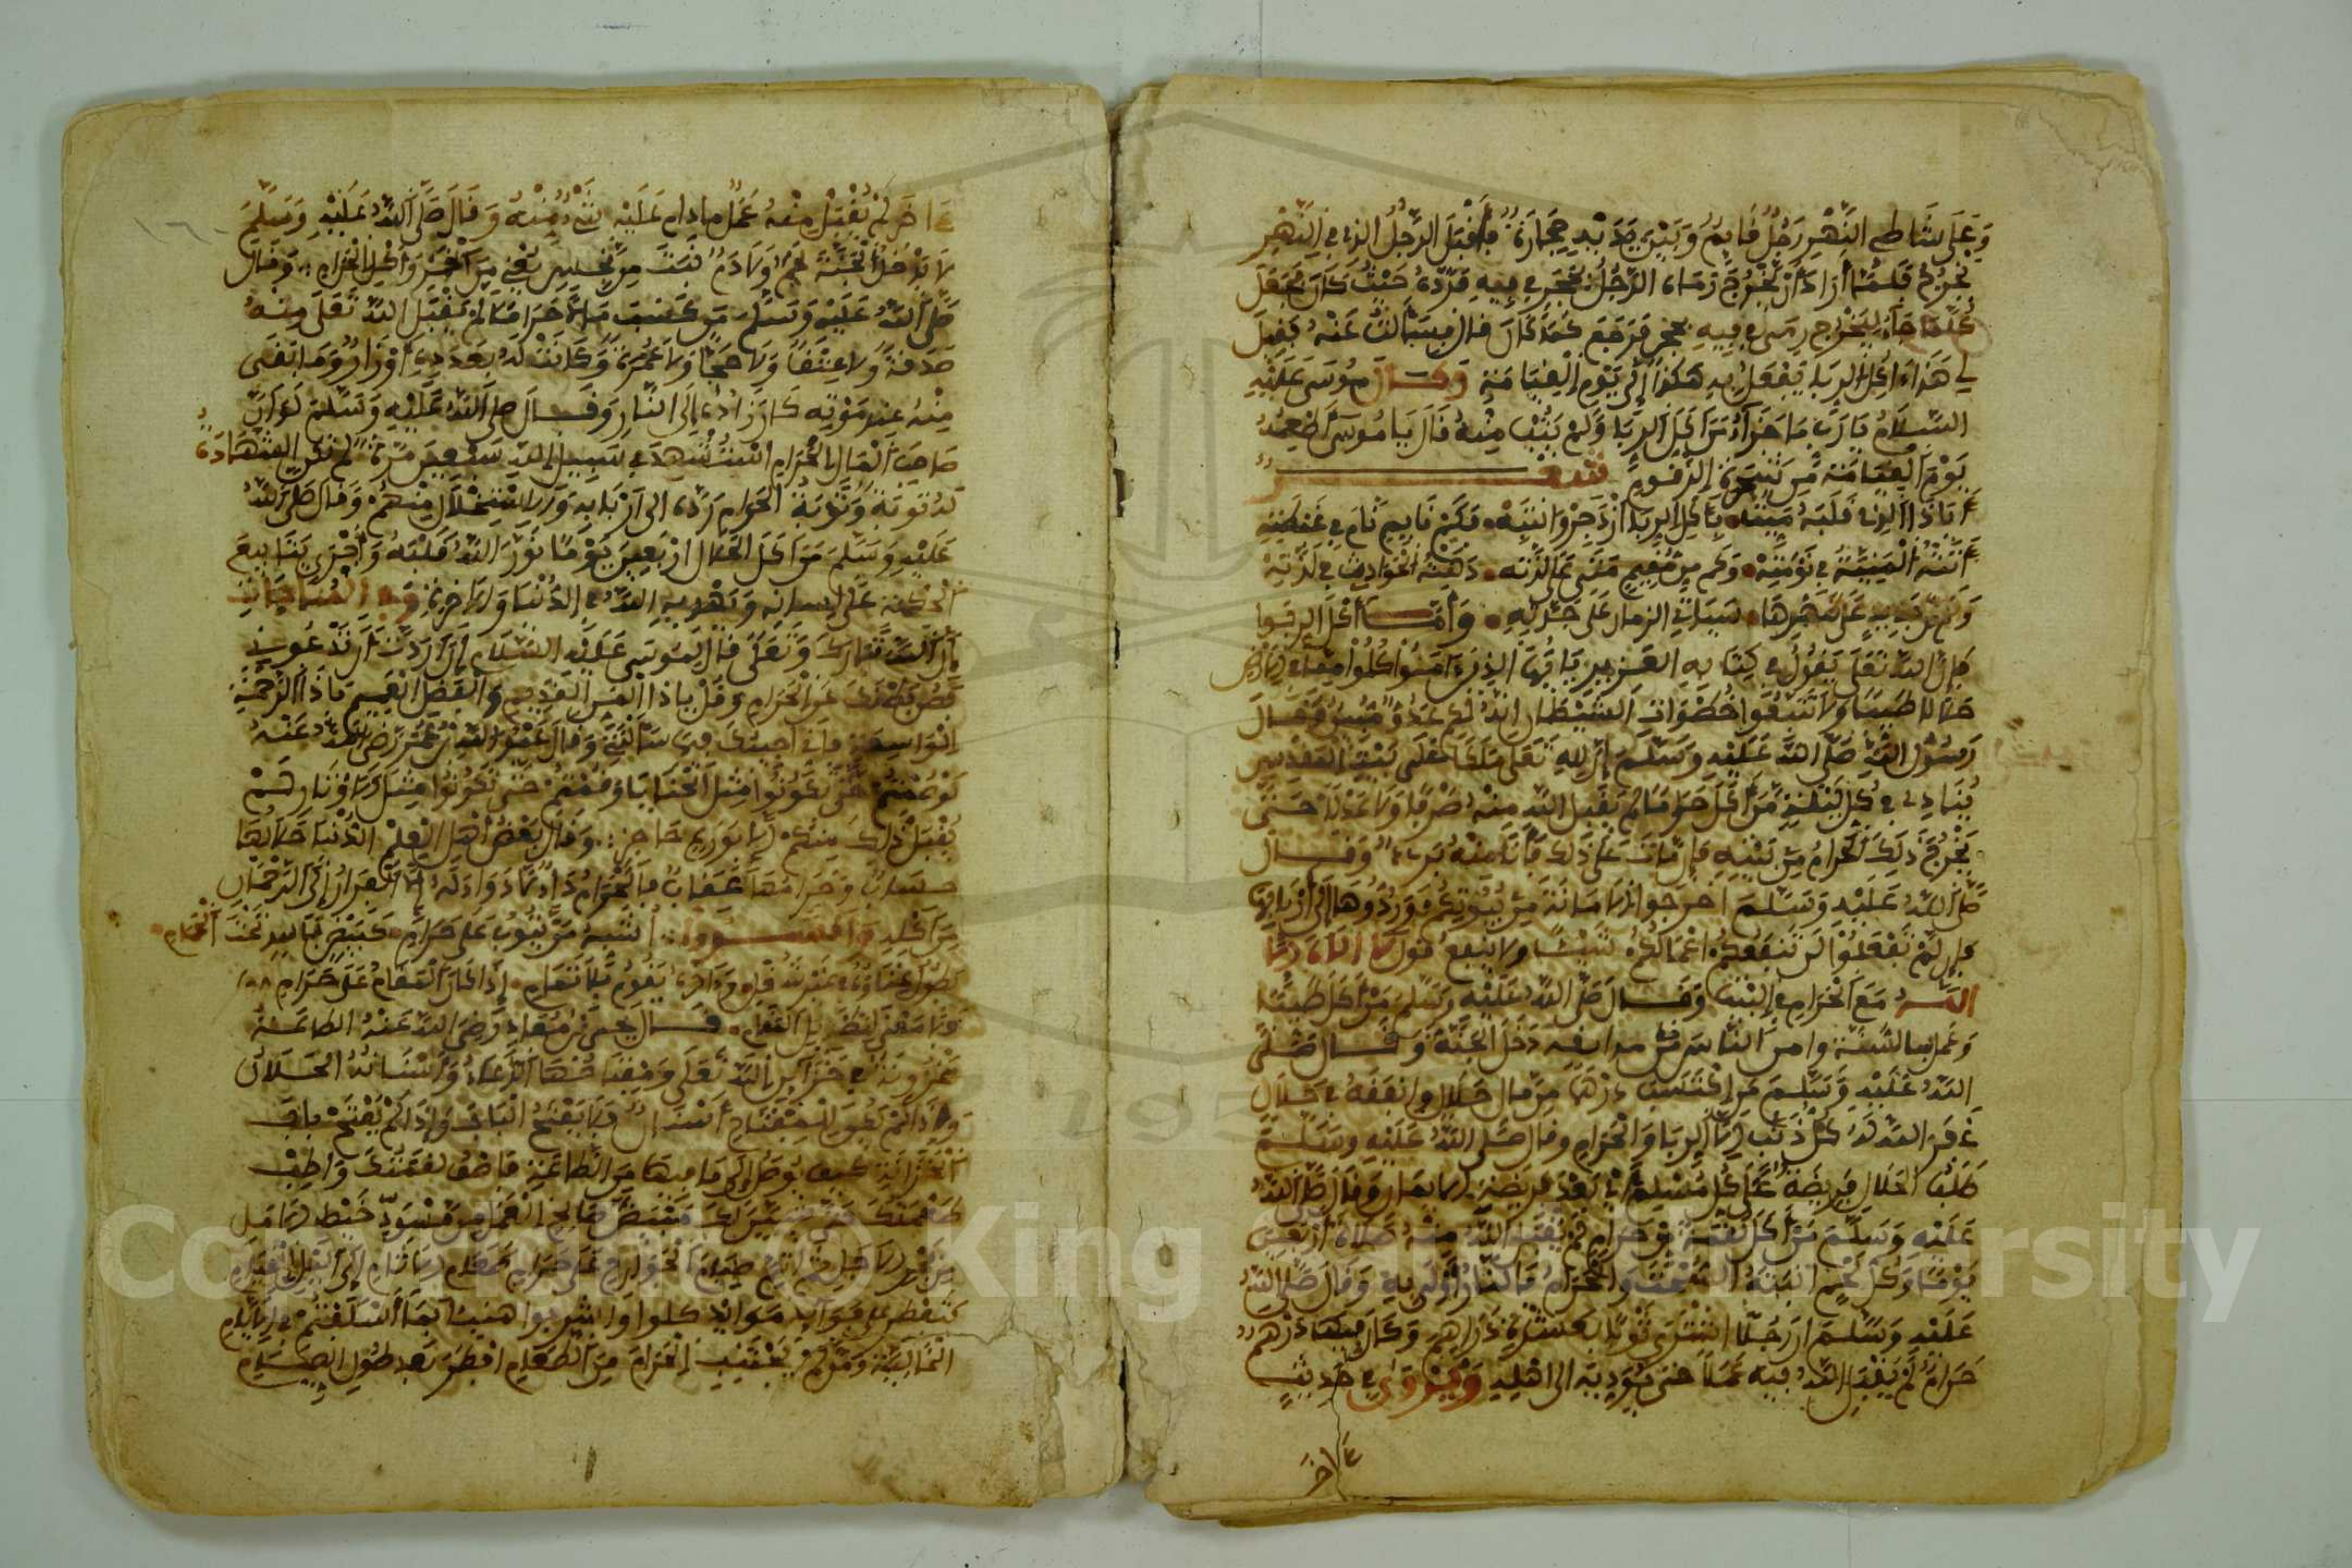 وَعَلَى شَاطِئِ النَّهْرِ رَجُلٌ قَايِمٌ وَبَيْنَ يَدَيْهِ حِجَارَةٌ فَأَقْبَلَ الرَّجُلُ الذِي فِي النَّهْرِ
يَخْرُجُ فَلَمَّا أَرَادَ أَنْ يَخْرُجَ رَمَاهُ الرَّجُلُ بِحَجَرٍ فِي فِيهِ فَرَدَّهُ حَيْثُ كَانَ فَجَعَلَ
كُلَّمَا جَاءَ لِيَخْرُجَ رَمَى فِي فِيهِ بِحَجَرٍ فَرَجَعَ كَمَا كَانَ قال فَسَأَلْتُ عَنْهُ فَقِيلَ
لِي هَذَا ءَاكِلُ الرِّبَا يُفْعَلُ بِهِ هَكَذَا إِلَى يَوْمِ الْقِيَامَةِ وَقَالَ مُوسَى عَلَيْهِ
السَّلَامُ يَا رَبِّ مَا جَزَاؤُ مَنْ أَكَلَ الرِّبَا وَلَمْ يَتُبْ مِنْهُ قَالَ يَا مُوسَى أُطْعِمُهُ
يَوْمَ الْقِيَامَةِ مِنْ شَجَرَةِ الزَّقُّومِ شعر
أَيَا ذَا الذِي قَلْبُهُ مَيِّتٌ بِأَكْلِ الرِّبَا ازْدَجِرْ وَانْتَبِهْ فَكَمْ نَايِمٍ نَامَ فِي غَبْطَةٍ
أَتَتْهُ الْمَنِيَّةُ فِي نَوْمَتِهْ وَكَمْ مِنْ مُقِيمٍ عَلَى لَذَّتِهِ دَهَتْهُ الْحَوَادِثُ فِي لَذَّتِهْ
وَكُلُّ جَدِيدٍ عَلَى ظَهْرِهَا سَيَأْتِي الزمان عَلَى جِدَّتِهِ وَأَمَّا أَكْلُ الحرام
فَإِنَّ اللَّهَ تَعَالَى يَقُولُ فِي كِتَابِهِ الْعَزِيزِ يَا أَيُّهَا الذِينَ ءَامَنُوا كُلُوا مِمَّا فِي الْأَرْضِ
حَلَالًا طَيِّبًا وَلَا تَتَّبِعُوا خُطُوَاتِ الشَّيْطَانِ إِنَّهُ لَكُمْ عَدُوٌّ مُبِينٌ وَقَالَ
رَسُولُ اللَّهِ صَلَّى اللَّهُ عَلَيْهِ وَسَلَّمَ إِنَّ لِلَّهِ تَعَالَى مَلَكًا عَلَى بَيْتِ الْمَقْدِسِ
يُنَادِي فِي كُلِّ لَيْلَةٍ مَنْ أَكَلَ حَرَامًا لَمْ يَقْبَلِ اللَّهُ مِنْهُ صَرْفًا وَلَا عَدْلًا حَتَّى
يَخْرُجَ ذَلِكَ الْحَرَامُ مِنْ بَيْتِهِ فَإِنْ مَاتَ عَلَى ذَلِكَ فَأَنَا مِنْهُ بَرِيءٌ وَقَالَ
صَلَّى اللَّهُ عَلَيْهِ وَسَلَّمَ أَخْرِجُوا الْأَمَانَةَ مِنْ بُيُوتِكُمْ وَرُدُّوهَا إِلَى أَرْبَابِهَا
فَإِن لَّمْ تَفْعَلُوا لَنْ تَنْفَعَكُمْ أَعْمَالُكُمْ شَيْئًا وَلَا يَنْفَعُ قَوْلُ لَا إِلَهَ إِلَّا
اللَّهُ مَعَ الْحَرَامِ فِي الْبَيْتِ وَقَالَ صَلَّى اللَّهُ عَلَيْهِ وَسَلَّمَ مَنْ أَكَلَ طَيِّبًا
وَعَمِلَ بِالسُّنَّةِ وَأَمِنَ النَّاسُ مِنْ بوايقه دَخَلَ الْجَنَّةَ وَقَالَ صَلَّى
اللَّهُ عَلَيْهِ وَسَلَّمَ مَنِ اكْتَسَبَ دِرْهَمًا مِنْ مال حَلَالٍ وَأَنْفَقَهُ فِي حَلَالٍ
غَفَرَ اللَّهُ لَهُ كُلَّ ذَنْبٍ إِلَّا الرِّبَا وَالْحَرَامَ وَقَالَ صَلَّى اللَّهُ عَلَيْهِ وَسَلَّمَ
طَلَبُ الْحَلَالِ فَرِيضَةٌ عَلَى كُلِّ مُسْلِمٍ بَعْدَ فَرِيضَةِ الْإِيمَانِ وَقَالَ صَلَّى اللَّهُ
عَلَيْهِ وَسَلَّمَ مَنْ أَكَلَ لُقْمَةً مِنْ حَرَامٍ لَمْ يَقْبَلِ اللَّهُ مِنْهُ صَلَاةَ أَرْبَعِينَ
يَوْمًا وَكُلُّ لَحْمٍ أَنْبَتَهُ السُّحْتُ وَالْحَرَامُ فَالنَّارُ أَوْلَى بِهِ وَقَالَ صَلَّى اللَّهُ
عَلَيْهِ وَسَلَّمَ أَنَّ رَجُلًا اشْتَرَى ثَوْبًا بِعَشْرَةِ دَرَاهِمَ وَكَانَ فِيهَا دِرْهَمٌ
حَرَامٌ لَمْ يَقْبَلِ اللَّهُ فِيهِ عَمَلًا حَتَّى يُؤَدِّيَهُ إِلَى أَهْلِهِ وَيُرْوَى فِي حَدِيثٍ
ءَاخَرَ
ءَاخَرَ لَمْ يُقْبَلْ مِنْهُ عَمَلٌ مَا دَامَ عَلَيْهِ شَيْءٌ مِنْهُ وَقَالَ صَلَّى اللَّهُ عَلَيْهِ وَسَلَّمَ
لَا يَدْخُلُ الْجَنَّةَ لَحْمٌ وَلَا دَمٌ نَبَتَ مِنْ نَجِسٍ يَعْنِي مِنَ الْخَمْرِ وَأَكْلِ الْحَرَامِ وَقَالَ
صَلَّى اللَّهُ عَلَيْهِ وَسَلَّمَ مَنْ كَسَبَ مَالًا حَرَامًا لَمْ يَقْبَلِ اللَّهُ تَعَالَى مِنْهُ
صَدَقَةً وَلَا عِتْقًا وَلَا حَجًّا وَلَا عُمْرَةً وَكَانَتْ لَهُ بِعَدَدِهِ أَوْزَارٌ وَمَا بَقِيَ
مِنْهُ عِنْدَ مَوْتِهِ كَانَ زَادَهُ إِلَى النَّارِ وَقَالَ صَلَّى اللَّهُ عَلَيْهِ وَسَلَّمَ لَوْ أَنَّ
صَاحِبَ الْمَالِ الْحَرَامِ اسْتُشْهِدَ فِي سَبِيلِ اللَّهِ سَبْعِينَ مَرَّةً لَمْ تَكُنِ الشَّهَادَةُ
لَهُ تَوْبَةً وَتَوْبَةُ الْحَرَامِ رَدُّهُ إِلَى أَرْبَابِهِ وَالِاسْتِحْلَالُ مِنْهُمْ وَقَالَ صَلَّى اللَّهُ
عَلَيْهِ وَسَلَّمَ مَنْ أَكَلَ الْحَلَالَ أَرْبَعِينَ يَوْمًا نَوَّرَ اللَّهُ قَلْبَهُ وَأَجْرَى يَنَابِيعَ
الْحِكْمَةِ عَلَى لِسَانِهِ وَيَهْدِيهِ اللَّهُ فِي الدُّنْيَا وَالْآخِرَةِ وفي المناجات
أَنَّ اللَّهَ تَبَارَكَ وَتَعَالَى قَالَ لِمُوسَى عَلَيْهِ السَّلَامُ إِنْ أَرَدْتَ أَنْ تَدْعُوَنِي
فَصُنْ بَطْنَكَ عَنِ الْحَرَامِ وَقُلْ يَا ذَا الْمَنِّ الْقَدِيمِ وَالْفَضْلِ الْعَمِيمِ يَا ذَا الرَّحْمَةِ
الْوَاسِعَةِ فَإِنِّي أُجِيبُكَ فِيمَا سَأَلْتَنِي وَقَالَ عَبْدُ اللَّهِ بْنُ عُمَرَ رَضِيَ اللَّهُ عَنْهُ
لَوْ صُمْتُمْ حَتَّى تَكُونُوا مِثْلَ الْحَنَايَا وَقُمْتُمْ حَتَّى تَكُونُوا مِثْلَ الْأَوْتَارِ لَمْ
يُقْبَلْ ذَلِكَ مِنْكُمْ إِلَّا بِوَرَعٍ حَاجِزٍ وَقَالَ بَعْضُ أَهْلِ الْعِلْمِ الدُّنْيَا حَلَالُهَا
حِسَابٌ وَحَرَامُهَا عِقَابٌ فَالْحَرَامُ دَاءٌ لَا دَوَاءَ لَهُ إِلَّا الْفِرَارُ إِلَى الرَّحْمَانِ
مِنْ أَكْلِهِ وَأَنْشَدُوا أُشَبِّهُ مَنْ يَتُوبُ عَلَى حَرَامٍ كَبَيْضٍ فَاسِدٍ تَحْتَ الْحَمَامِ
يَطُولُ عَنَاؤُهُ مِنْ غَيْرِ شُغْلٍ وَءَاخِرُهُ يَقُومُ بِلَا تَمَامِ إِذَا كَانَ الْمَقَامُ عَلَى حَرَامٍ
فَلَا مَعْنَى لِتَطْوِيلِ الْقِيَامِ قَالَ يَحْيَى بْنُ مُعَاذٍ رَضِيَ اللَّهُ عَنْهُ الطَّاعَةُ
مَخْزُونَةٌ فِي خَزَائِنِ اللَّهِ تَعَالَى وَمِفْتَاحُهَا الدُّعَاءُ وَأَسْنَانُهُ الْحَلَالُ
وَإِذَا لَمْ يَكُنْ لِلْمِفْتَاحِ أَسْنَانٌ فَلَا يَفْتَحُ الْبَابَ وَإِذَا لَمْ يُفْتَحْ بَابُ
الْخَزَانَةِ كَيْفَ يُوصَلُ إِلَى مَا فِيهَا مِنَ الطَّاعَةِ فَاصْفُ لُقْمَتَكَ وَأَطِبْ
طُعْمَتَكَ
الْخَالِيَةِ وَمَنْ لَمْ يَجْتَنِبِ الْحَرَامَ مِنَ الطَّعَامِ أَفْطَرَ بَعْدَ طُولِ الصِّيَامِ
Copyright © King Saud University